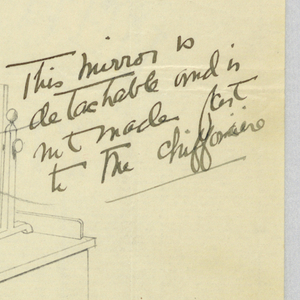 This mirror is
detachable and is
not made fast
to the chiffoniere